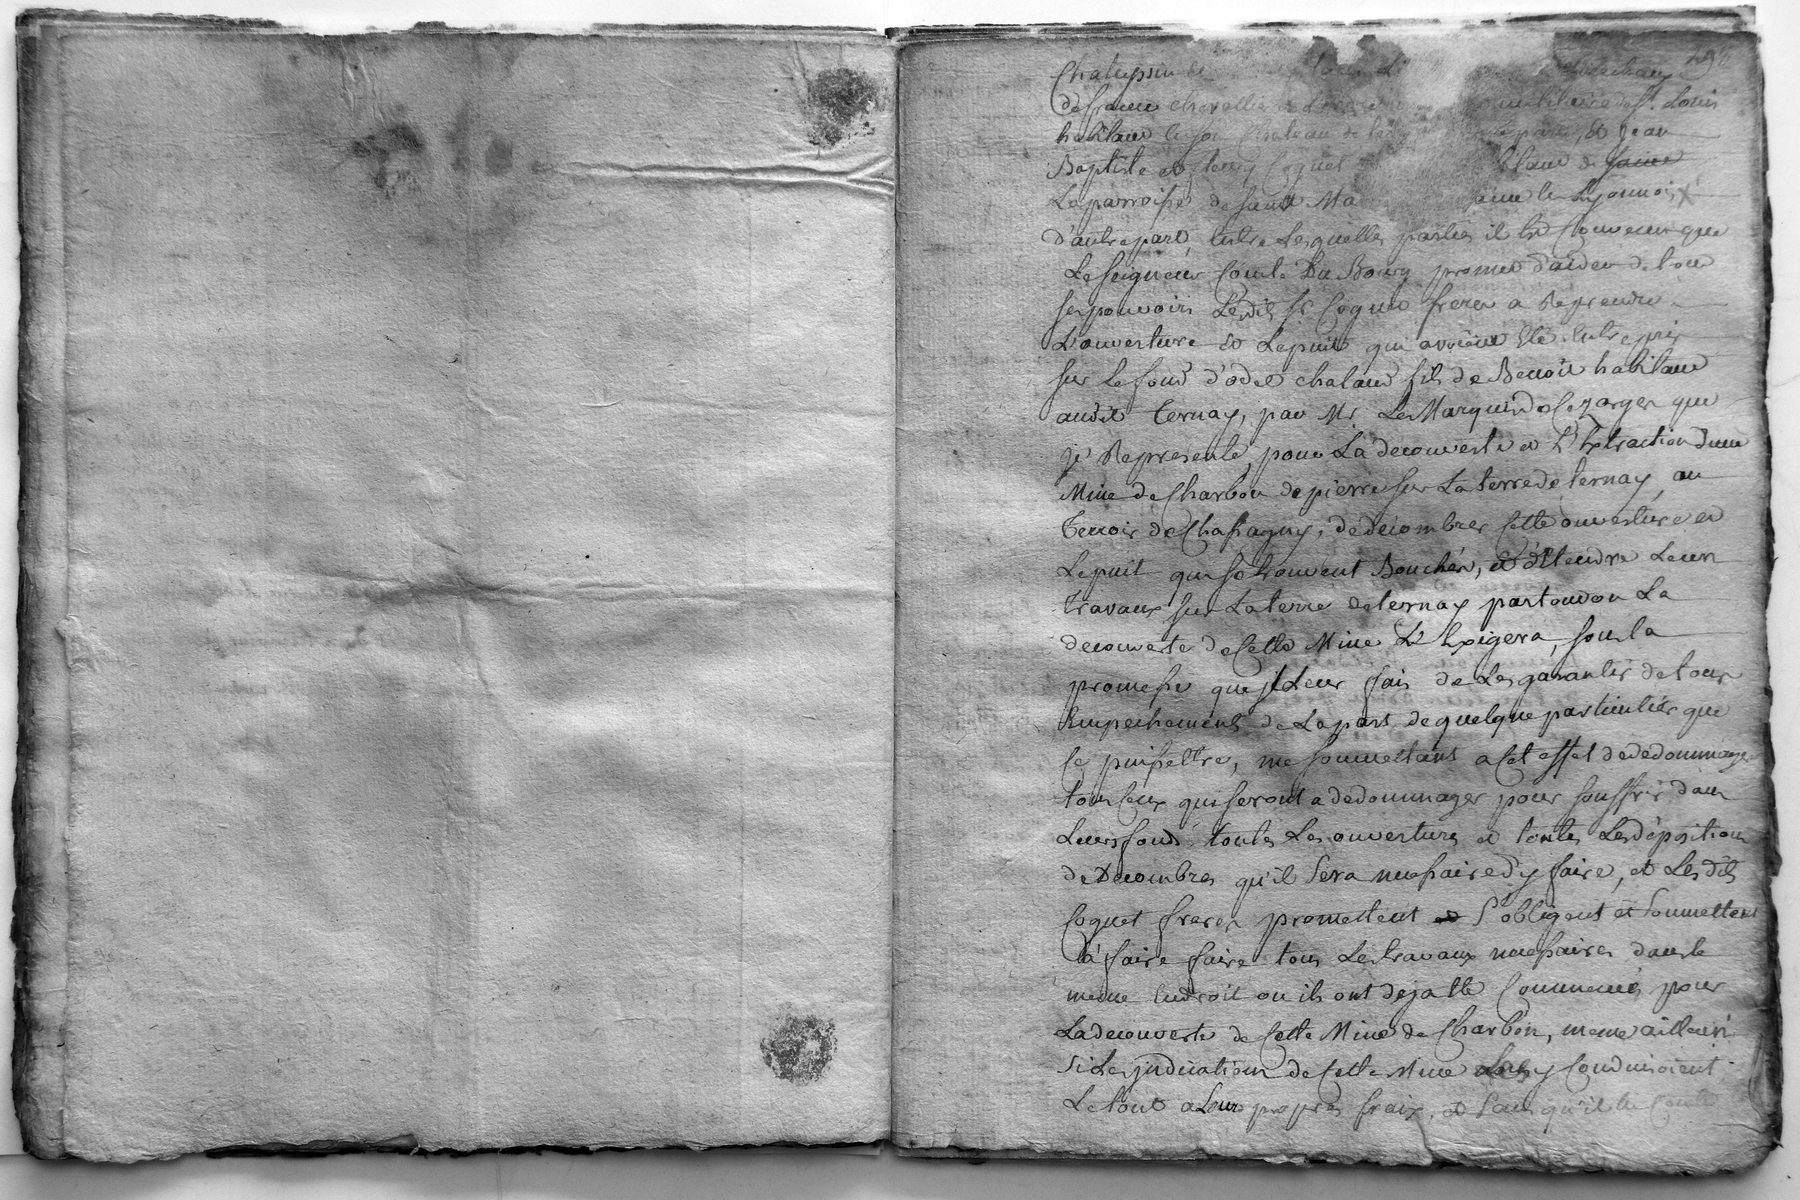 de france chevallier militaire de St. Louis
habitant chateau de part, et jean
Baptiste et fleury Coquet de
La parroisse de saint Ma en Lyonnois
d'autre part, Entre Lesquelles parties il Est Convenu que
Le seigneur Comte Du Bourg promet d'aider de tout
ses pouvoirs Lesdits Sr Coquet freres a Reprendre
L'ouverture et Le puit qui avoient Eté Entrepris
sur Le fond d'odet chaland fils de Benoit habitant
audit Ternay, par Mr. Le Marquis de que
je Represente, pour La decouverte et L'Extraction d'une
Mine de Charbon de pierre sur La terre de ternay, au
Terroir de Chassagny, de decombrer Cette ouverture et
Le puit qui se trouvent Bouchés, et d'Etendre Leurs
travaux sur La terre de ternay partout ou La
decouverte de Cette Mine L'Exigera, sous la
promesse que je Leur fais de Les garantir de tous
Empechements de La part de quelque particulier que
Ce puisse Etre, me soumettant a Cet effet de dedommager
tous Ceux qui seront a dedommager pour souffrir dans
Leurs fonds toutes Les ouvertures et toutes Les dépositions
de Decombres qu'il sera necessaire d'y faire, et Lesdits
Coquet freres promettent et s'obligent et soumettent
à faire faire tous Les travaux necessaires dans le
meme Endroit ou ils ont deja Eté Commencés pour
La decouverte de Cette Mine de Charbon, meme ailleurs
si Les indications de Cette Mine Les y Conduisoient
Le tout a Leurs propres fraix, et sans qu'il En Coute